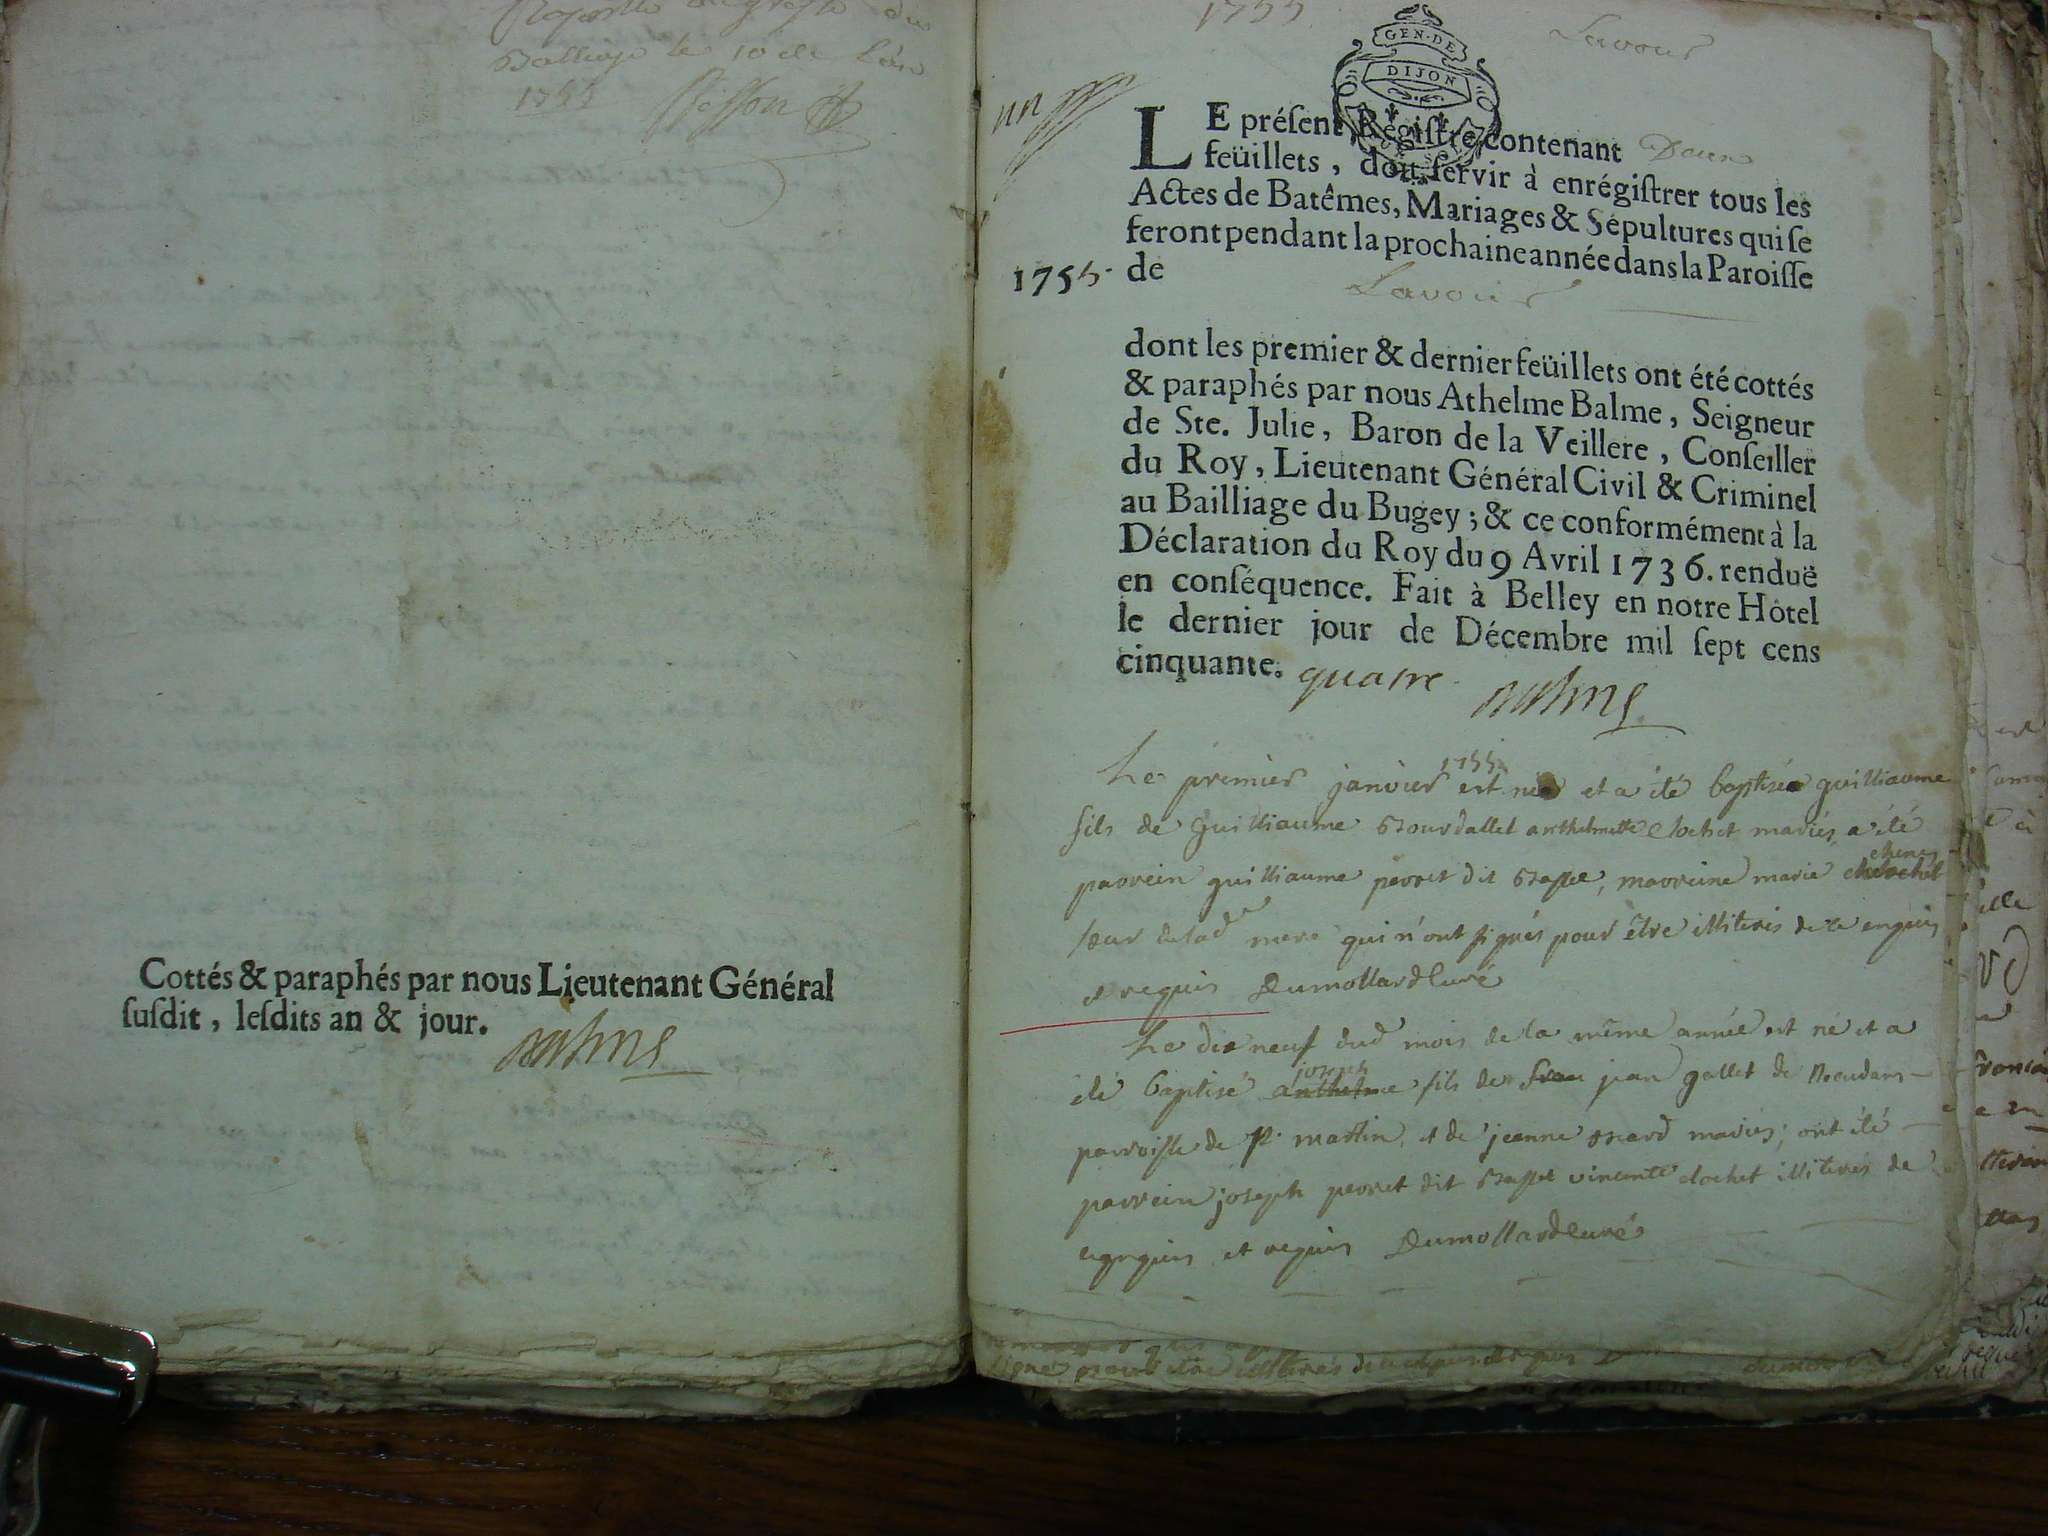 du
Balliage le 10 de
1755
Cottés & paraphés par nous Lieutenant Général
susdit, lesdits an & jour.
1755
Lavour
GEN·DE
DIJON
un
LE préſent Régiſtre contenant Deux
feüillets, doit ſervir à enrégiſtrer tous les
Actes de Batêmes, Mariages & Sépultures qui ſe
feront pendant la prochaine année dans la Paroiſſe
1755. de Lavour
dont les premier & dernier feüillets ont été cottés
& paraphés par nous Athelme Balme, Seigneur
de Ste. Julie, Baron de la Veillere, Conſeiller
du Roy, Lieutenant Général Civil & Criminel
au Bailliage du Bugey; & ce conformément à la
Déclaration du Roy du 9 Avril 1736. renduë
en conſéquence. Fait à Belley en notre Hôtel
le dernier jour de Décembre mil ſept cens
cinquante. quatre
1755
Le premier janvier est né et a été baptisé guilliaume
fils de guilliaume Bourdallet anthelmette clochet mariés, a été
parrein guilliaume perret dit Basset, marreine marie
sœur de lad mere qui n'ont signés pour être illiterés de ce enquis
et requis Dumollard Curé
Le dix neuf dud mois de la même année est né et a
joseph
été baptisé anthelme fils de jean gallet de
parroisse de St. martin, et de jeanne mariés; ont été
parrein joseph perret dit Basset vincente clochet illiterés de
enquis et requis Dumollard curé
signé pour être illiterés de ce enquis et requis